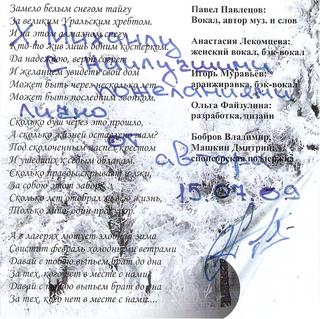 Замело белым снегом тайгу
За великим Уральским хребтом.
И на этом
снегу
Кто-то жив лишь одним костерком.
Да надеждою, верой согрет
И желаньем увидеть свой дом
Может быть через несколько лет
Может быть последним звонком.
Сколько душ через это прошло,
А сколько жизней оставлено там?
Под сколоченным наспех крестом
И ушедших к седым облакам.
Сколько правды скрывают зэки,
За собою этот забор
Сколько лет отобрал за всю жизнь,
Только лишь один прокурор.
А в лагерях мотует злобная зима
Свистит февраль холодными ветрами
Давай с тобою выпьем брат до дна
За тех, кого нет в месте с нами.
Давай с тобою выпьем брат до дна
За тех, кого нет в месте с нами....
Павел Павлецов:
Вокал, автор муз. и слов
Анастасия Лекомцева:
женский вокал, бэк-вокал
Игорь Муравьёв:
аранжировка, бэк-вокал
Ольга Файзулина:
разработка, дизайн
Бобров Владимир,
Машкин Дмитрий:
спонсорская поддержка
с
наилучшими
пожеланиями
лично
от
автора
15.07.09